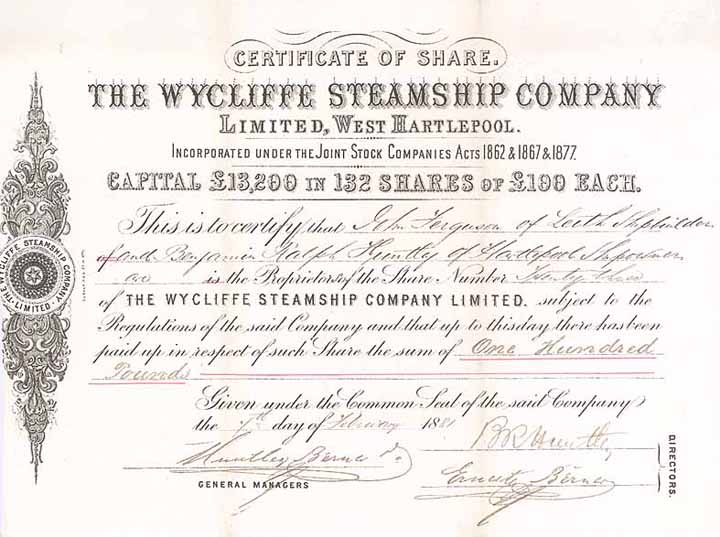 CERTIFICATE OF SHARE.
THE WYCLIFFE STEAMSHIP COMPANY
LIMITED, WEST HARTLEPOOL.
INCORPORATED UNDER THE JOINT STOCK COMPANIES ACTS 1862 & 1867 & 1877.
CAPITAL £13,200 IN 132 SHARES OF £100 EACH.
This is to certify that John Ferguson of Leith Shipbuilder
of and Benjamin Ralph Huntley of Hartlepool Shipowner
are is the Proprietors of the Share Number Twenty three
of THE WYCLIFFE STEAMSHIP COMPANY LIMITED. subject to the
Regulations of the said Company and that up to this day there has been
paid up in respect of such Share the sum of One Hundred
Pounds
Given under the Common Seal of the said Company
the 7th day of February 1881
B R Huntley
Huntley Berner & Co
Ernest Berner
GENERAL MANAGERS
DIRECTORS.
THE WYCLIFFE STEAMSHIP COMPANY LIMITED.